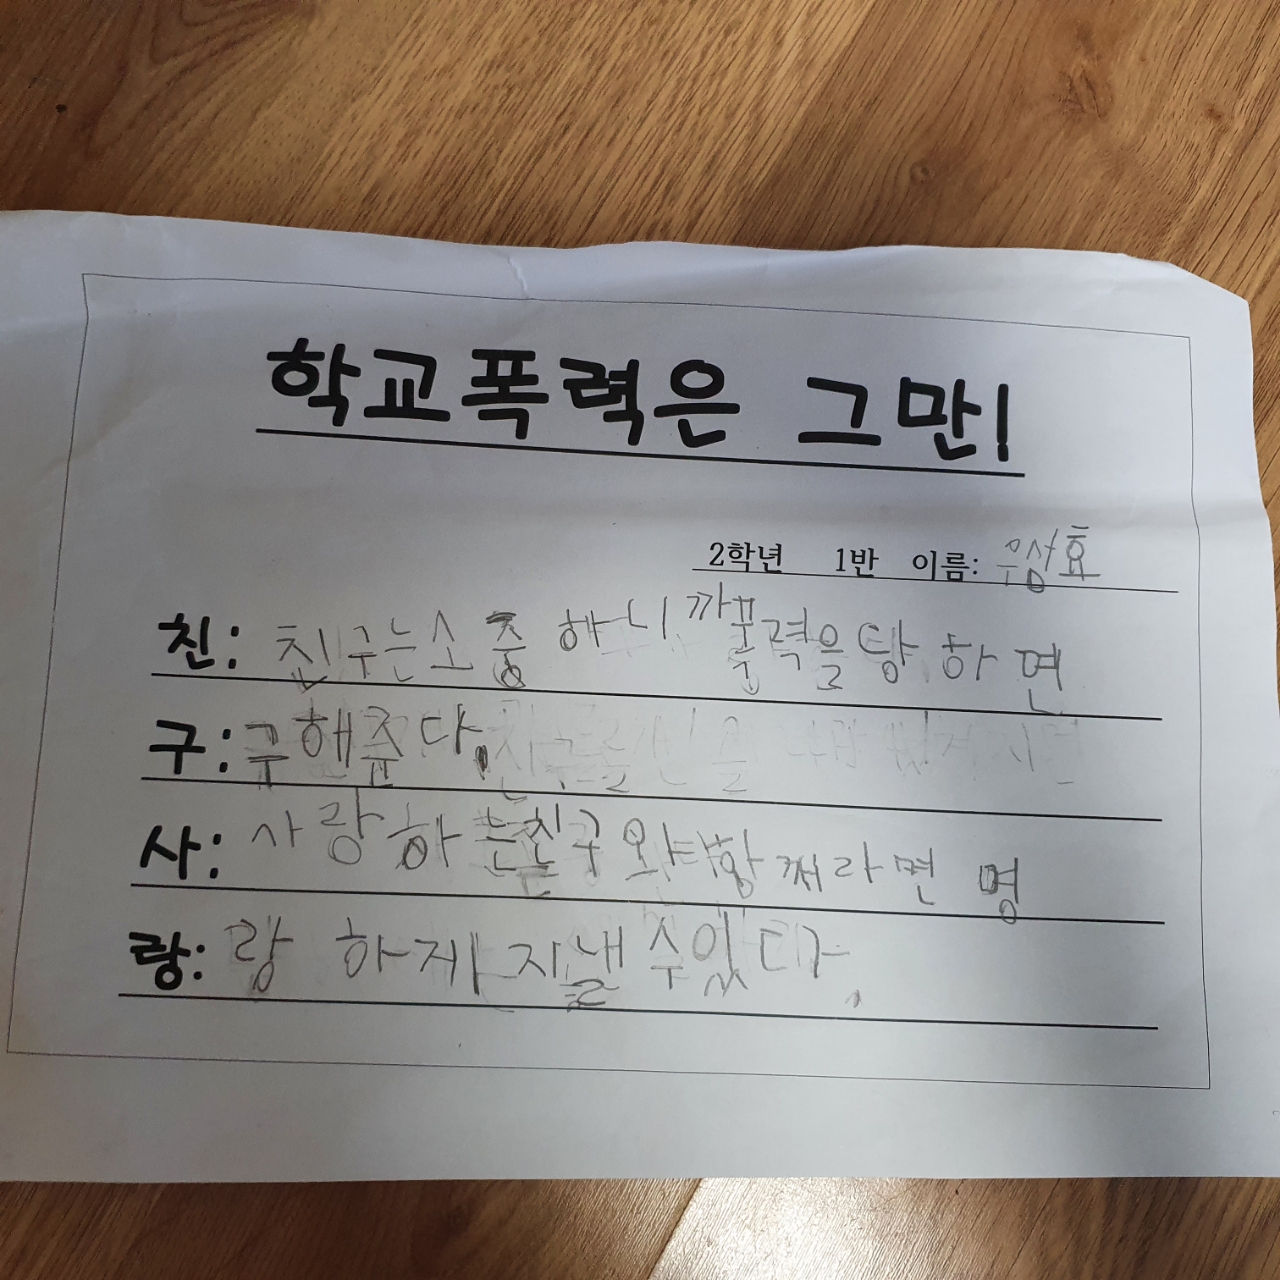 학교폭력은 그만!
2학년 1반 이름: 우삼효
친: 친구는소중 해니까폭력을당하면
구: 구해준다.
사: 사랑하는친구와함께라면 명
랑: 랑 하게지낼수있다.